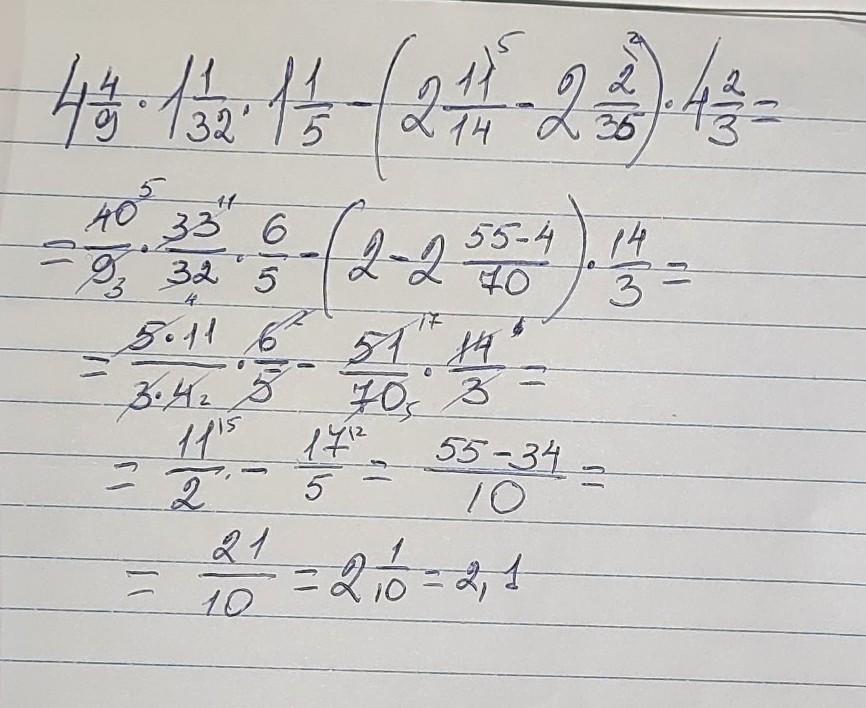 4 4/9 · 1 1/32 · 1 1/5 - (2 11/14 - 2 2/35) · 4 2/3 =
= 40/9 · 33/32 · 6/5 - (2 - 2 55-4/70) · 14/3 =
= 5·11/3·4 · 6/5 - 51/70 · 14/3 =
= 11/2 · - 17/5 = 55-34/10 =
= 21/10 = 2 1/10 = 2,1